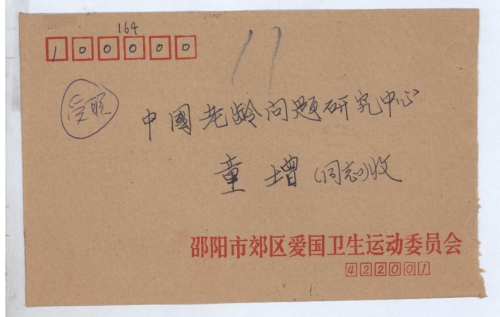 164
100000
11
受贶
中國老龄问题研究中心
童增(同志)收
邵阳市郊区爱国卫生运动委员会
422001